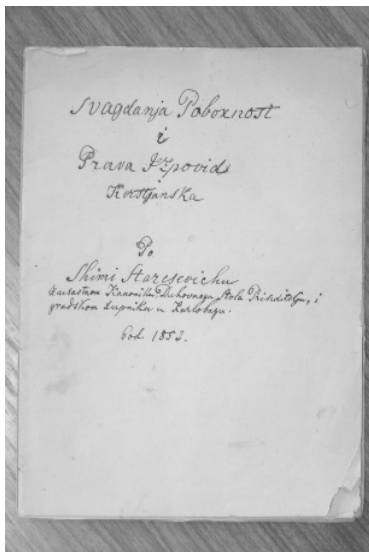 Svagdanja Poboxnost
i
Prava Izpovid
Kerstjanska
Po
Shimi Starcsevichu
Duhovnoga Stola Prisiditelju, i
gradskom xupniku u Karlobagu.
God. 1852.